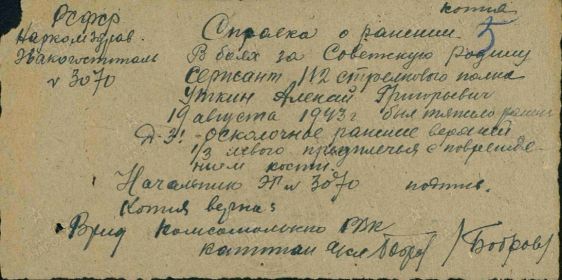 копия
5
РСФСР
Наркомздрав.
Эвакогоспиталь
№ 3070
Справка о ранении.
В боях за Советскую Родину
сержант 112 стрелкового полка
Уткин Алексей Григорьевич
19 августа 1943 г был тяжело ранен
Д-з: - Осколочное ранение верхней
1/3 левого предплечья с поврежде-
нием кости.
Начальник ЭГ № 3070 подпись.
Копия верна:
Врид Комсомольского РВК
капитан Бобров /Бобров/